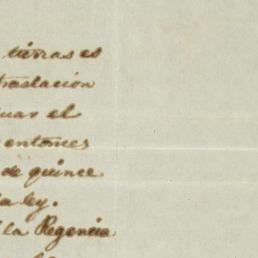 tierras es
traslacion
el
entonces
de quince
ley.
la Regencia